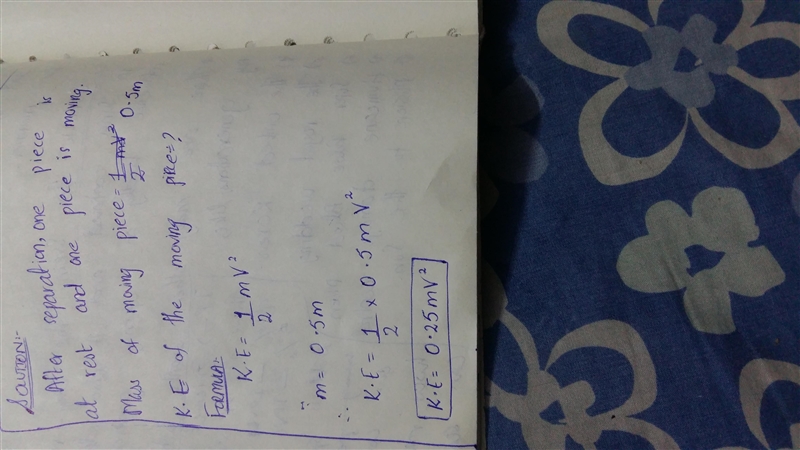 Solution:-
After separation, one piece is
at rest and one piece is moving.
Mass of moving piece = 1 mV²/2 0.5m
K.E of the moving piece=?
Formula:-
K.E = 1/2 mV²
∵ m = 0.5m
∴ K.E = 1/2 x 0.5 m V²
K.E = 0.25mV²